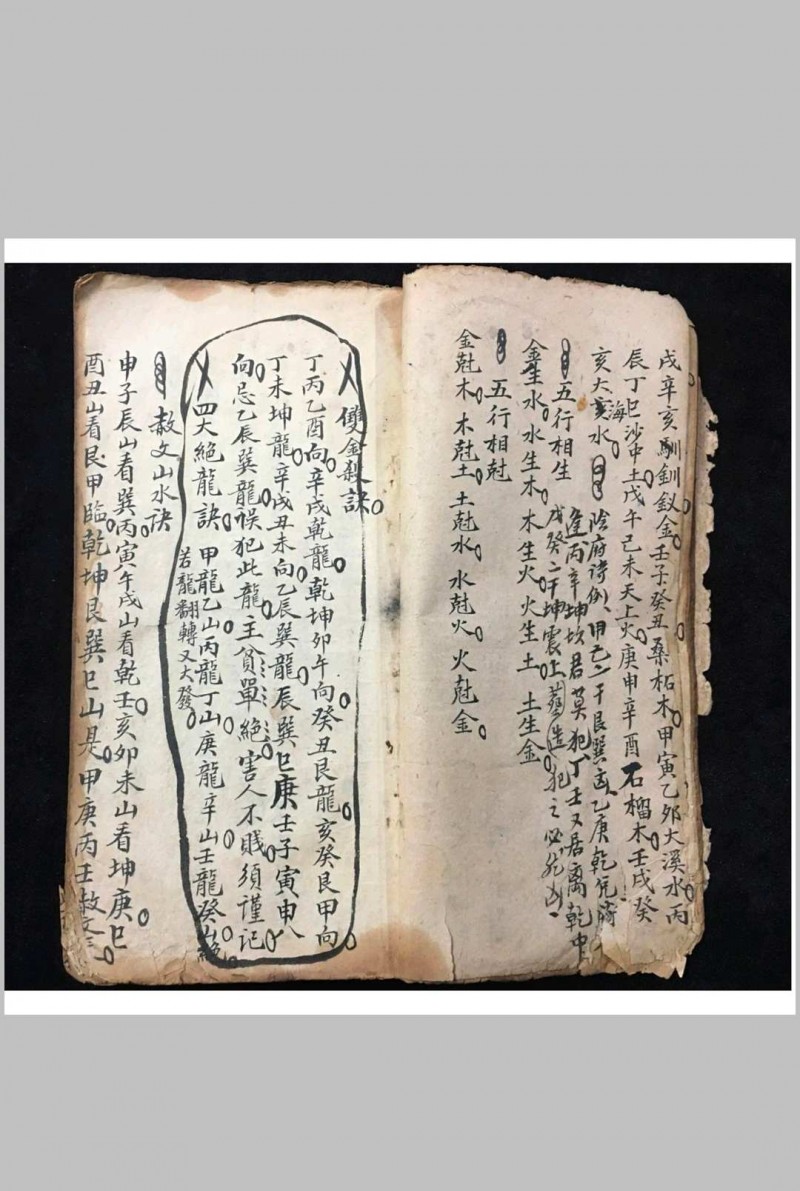 戌辛亥馴釧釵金壬子癸丑桑柘木甲寅乙夘大溪水丙
辰丁巳沙中土戊午己未天上火庚申辛酉石榴木壬戌癸
亥大海水
陰府詩例甲己二干艮巽乙庚乾兌
逢丙辛坤坎君莫犯丁壬又居離乾中
戊癸二干坤震上造犯之必死凶
五行相生
金生水水生木木生火火生土土生金
五行相尅
金尅木木尅土土尅水水尅火火尅金
雙金殺訣
丁丙乙酉向辛戌乾龍乾坤卯午向癸丑艮龍亥癸艮甲向
丁未坤龍辛戌丑未向乙辰巽龍辰巽巳庚壬子寅申八
向忌乙辰巽龍悮犯此龍主貧單絕害人不賎須谨记
四大絕龍訣甲龍乙山丙龍丁山庚龍辛山壬龍癸山絕
若龍翻轉又大發
赦文山水訣
申子辰山看巽丙寅午戌山看乾壬亥卯未山看坤庚巳
酉丑山看艮甲臨乾坤艮巽巳山是甲庚丙壬赦文